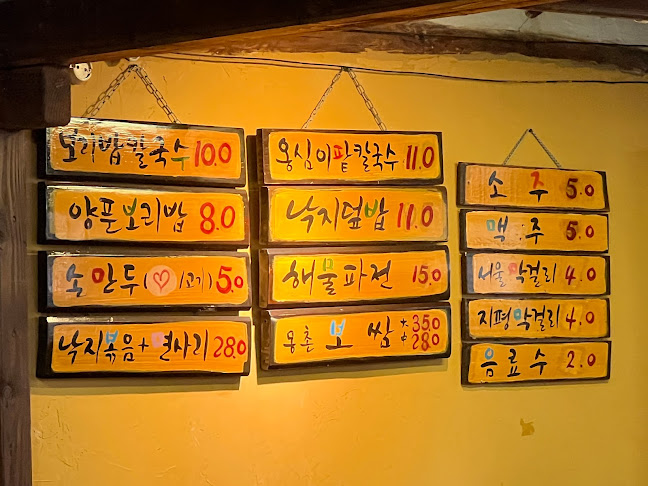 보리밥칼국수 10.0
양푼보리밥 8.0
손만두(♡/고기) 5.0
낙지볶음+면사리 28.0
옹심이팥칼국수 11.0
낙지덮밥 11.0
해물파전 15.0
몽촌 보쌈 大 35.0 小 28.0
소주 5.0
맥주 5.0
서울막걸리 4.0
지평막걸리 4.0
음료수 2.0